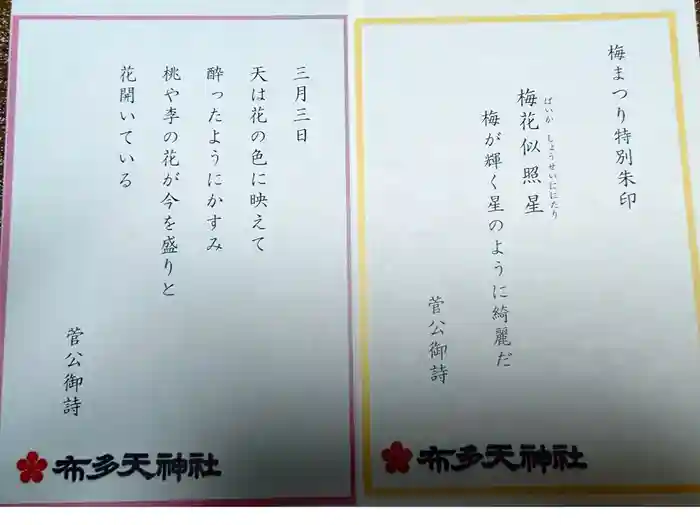 梅まつり特別朱印
梅花似照星
ばいか しょうせいににたり
梅が輝く星のように綺麗だ
菅公御詩
布多天神社
三月三日
天は花の色に映えて
酔ったようにかすみ
桃や李の花が今を盛りと
花開いている
菅公御詩
布多天神社